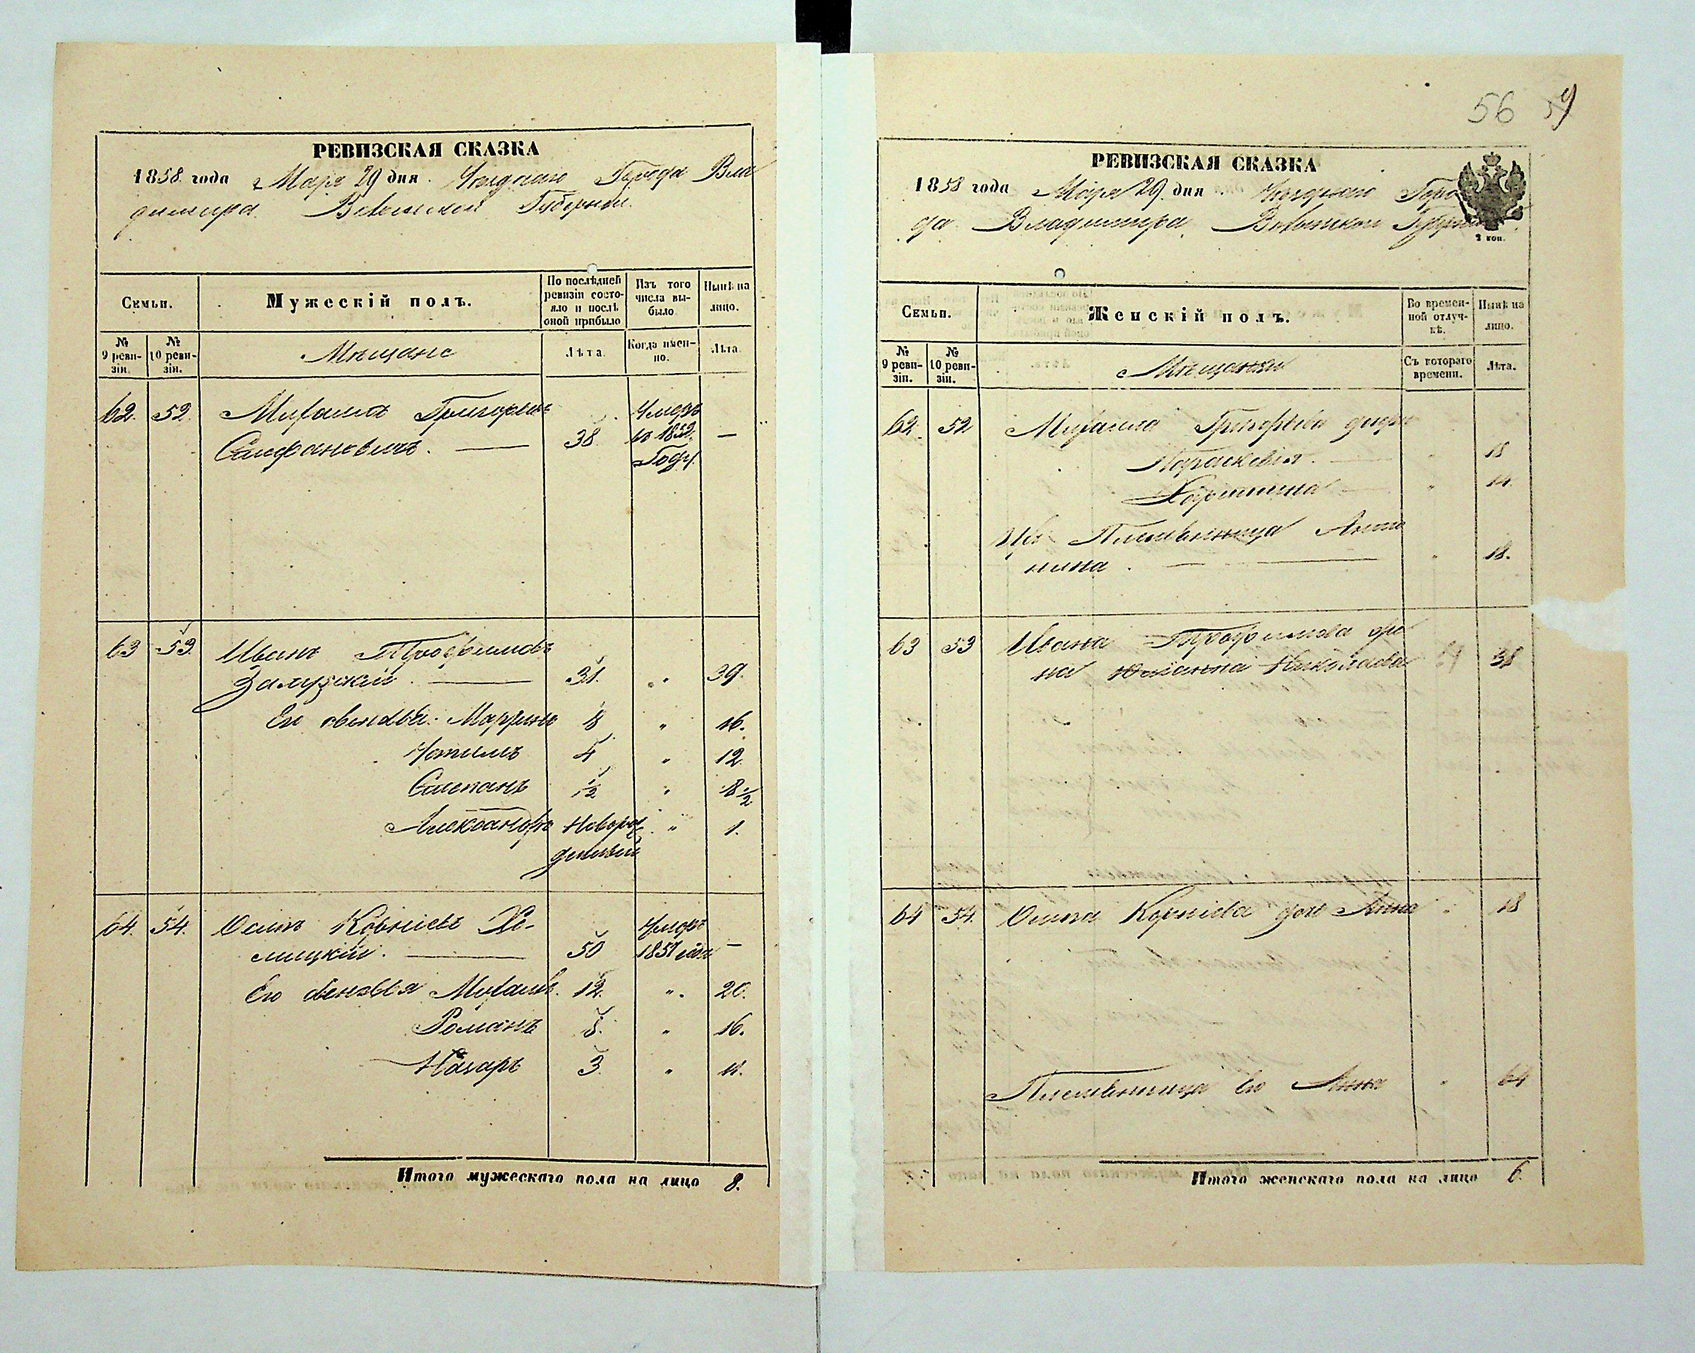 РЕВИЗСКАЯ СКАЗКА
1858 года Марта 29 дня Уезднаго Города Вла
димира Волынской Губернии
Семьи.
Мужескій полъ.
По послѣдней ревизіи состояло и послѣ оной прибыло
Изъ того числа выбыло
Нынѣ на лицо.
№ 9 ревизіи.
№ 10 ревизіи.
Мѣщане
Лѣта.
Когда именно.
Лѣта
62. 52 Михаилъ Григорьевъ Умеръ
Стефановичъ. — 38 въ 1852 —
Году
63 53 Иванъ Трофимовъ
Залускій. — 31. „ 39.
Его сыновья Мартинъ 8 „ 16.
4 „ 12
Степанъ 1/2 „ 8 1/2
Александръ Новорож „ 1.
денный
64. 54. Осипъ Корніевъ Хо- Умеръ
мицкій. — 50 1857 года —
Его сыновья Михаилъ. 12. „ 20.
Романъ 8. „ 16.
Назаръ 3 „ 11.
Итого мужескаго пола на лицо 8.
56 59
РЕВИЗСКАЯ СКАЗКА
1858 года Марта 29 дня Уезднаго Горо
да Владимира Волынской Губернии
2 коп.
Семьи.
Женскій полъ.
Во временной отлучкѣ.
Нынѣ на лицо.
№ 9 ревизіи.
№ 10 ревизіи.
Мѣщанки
Съ котораго времени.
Лѣта.
62. 52 Михаила Григорьева дочери
Параскевія. „ 18
„ 14.
Племянница Анто
нина. — „ 18.
63 53 Ивана Трофимова же
на Николаева 38
64 54. Осипа Корніева дочь Анна „ 18
Племянница Его Анна „ 64
Итого женскаго пола на лицо 6.